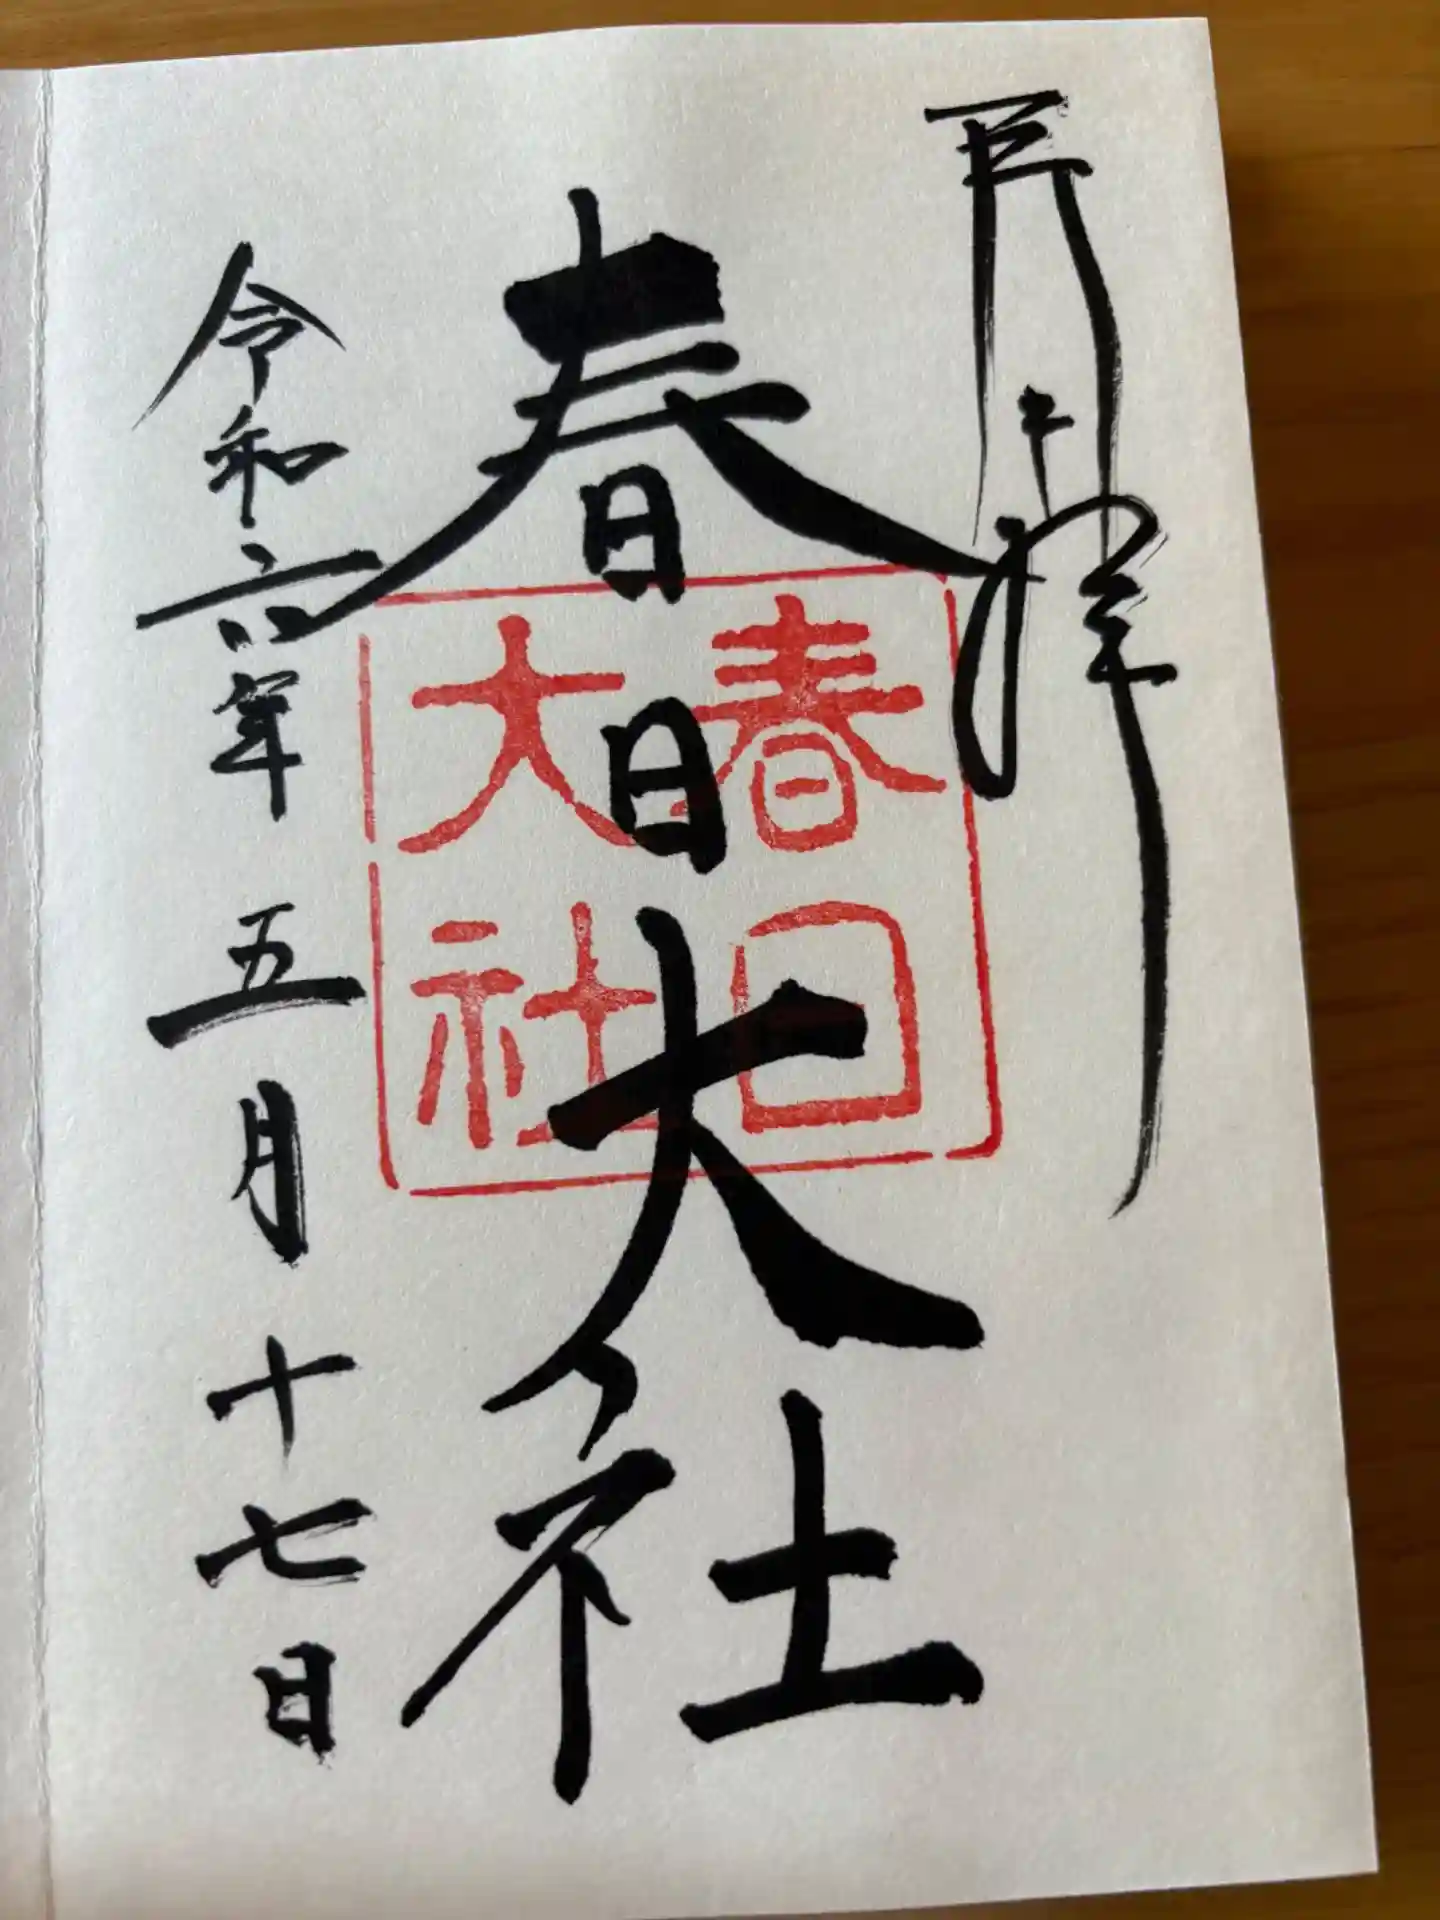 奉拝
春日大社
春日
大社
令和六年五月十七日